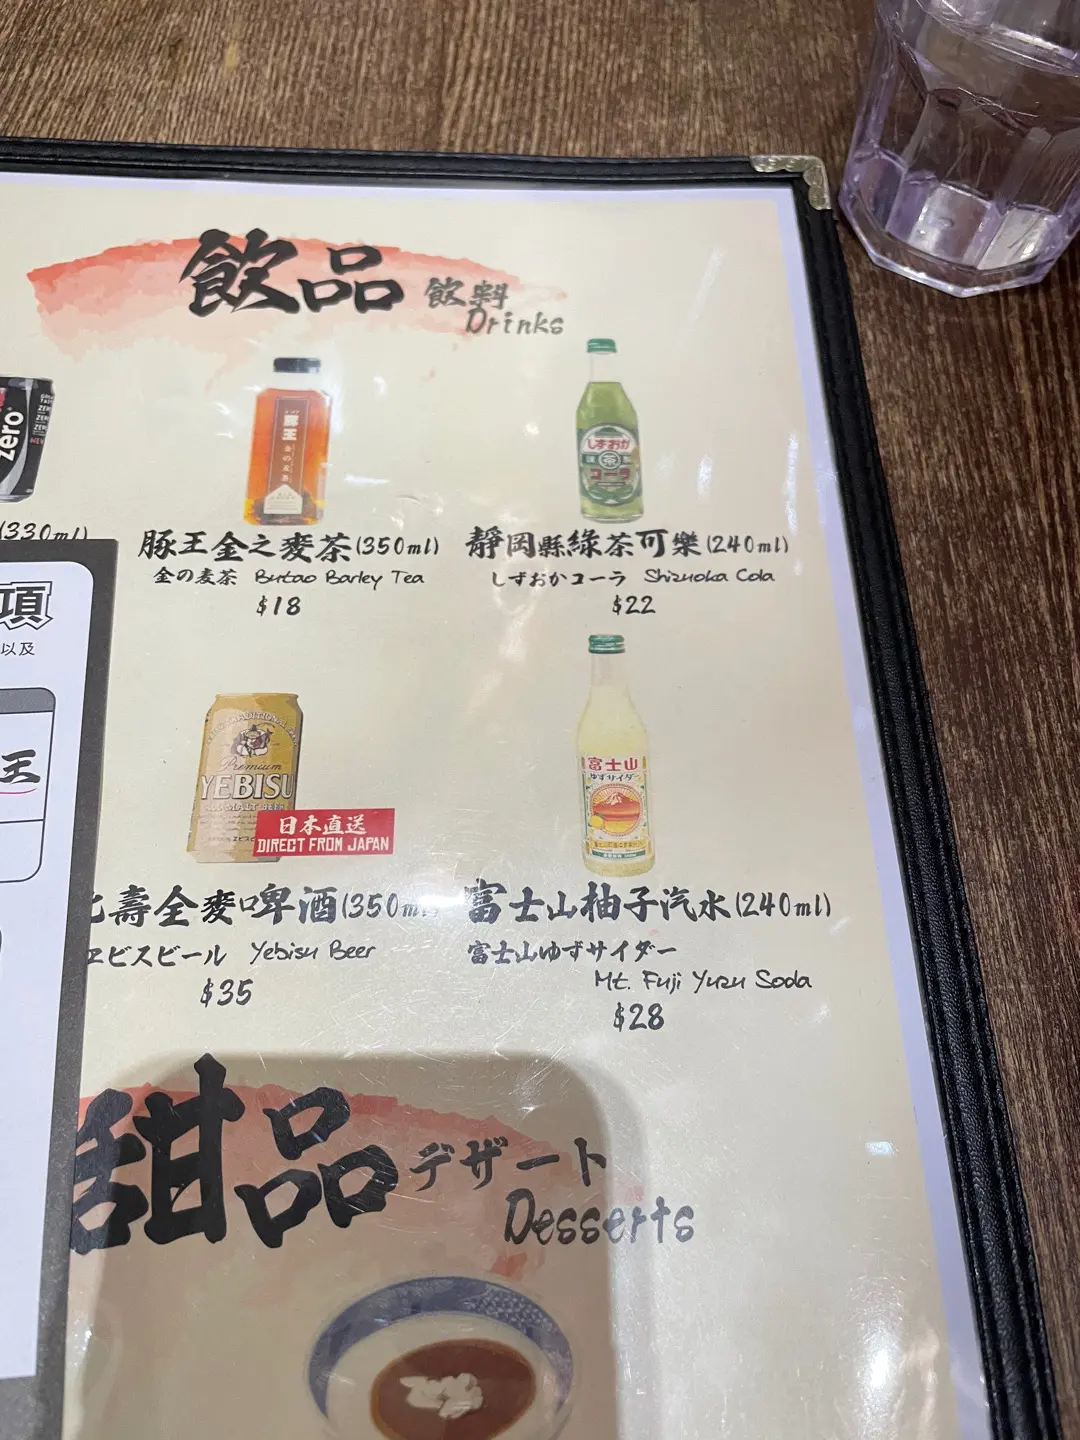 飲品
飲料
Drinks
zero
(330ml)
豚王
金の麦茶
しずおか
茶
コーラ
豚王金之麥茶(350ml)
金の麦茶 Butao Barley Tea
$18
靜岡縣綠茶可樂(240ml)
しずおかコーラ Shizuoka Cola
$22
項
以及
王
Premium
YEBISU
ALL MALT BEER
日本直送
DIRECT FROM JAPAN
富士山
ゆずサイダー
壽全麥啤酒(350m
ヱビスビール Yebisu Beer
$35
富士山柚子汽水(240ml)
富士山ゆずサイダー
Mt. Fuji Yuzu Soda
$28
甜品
デザート
Desserts